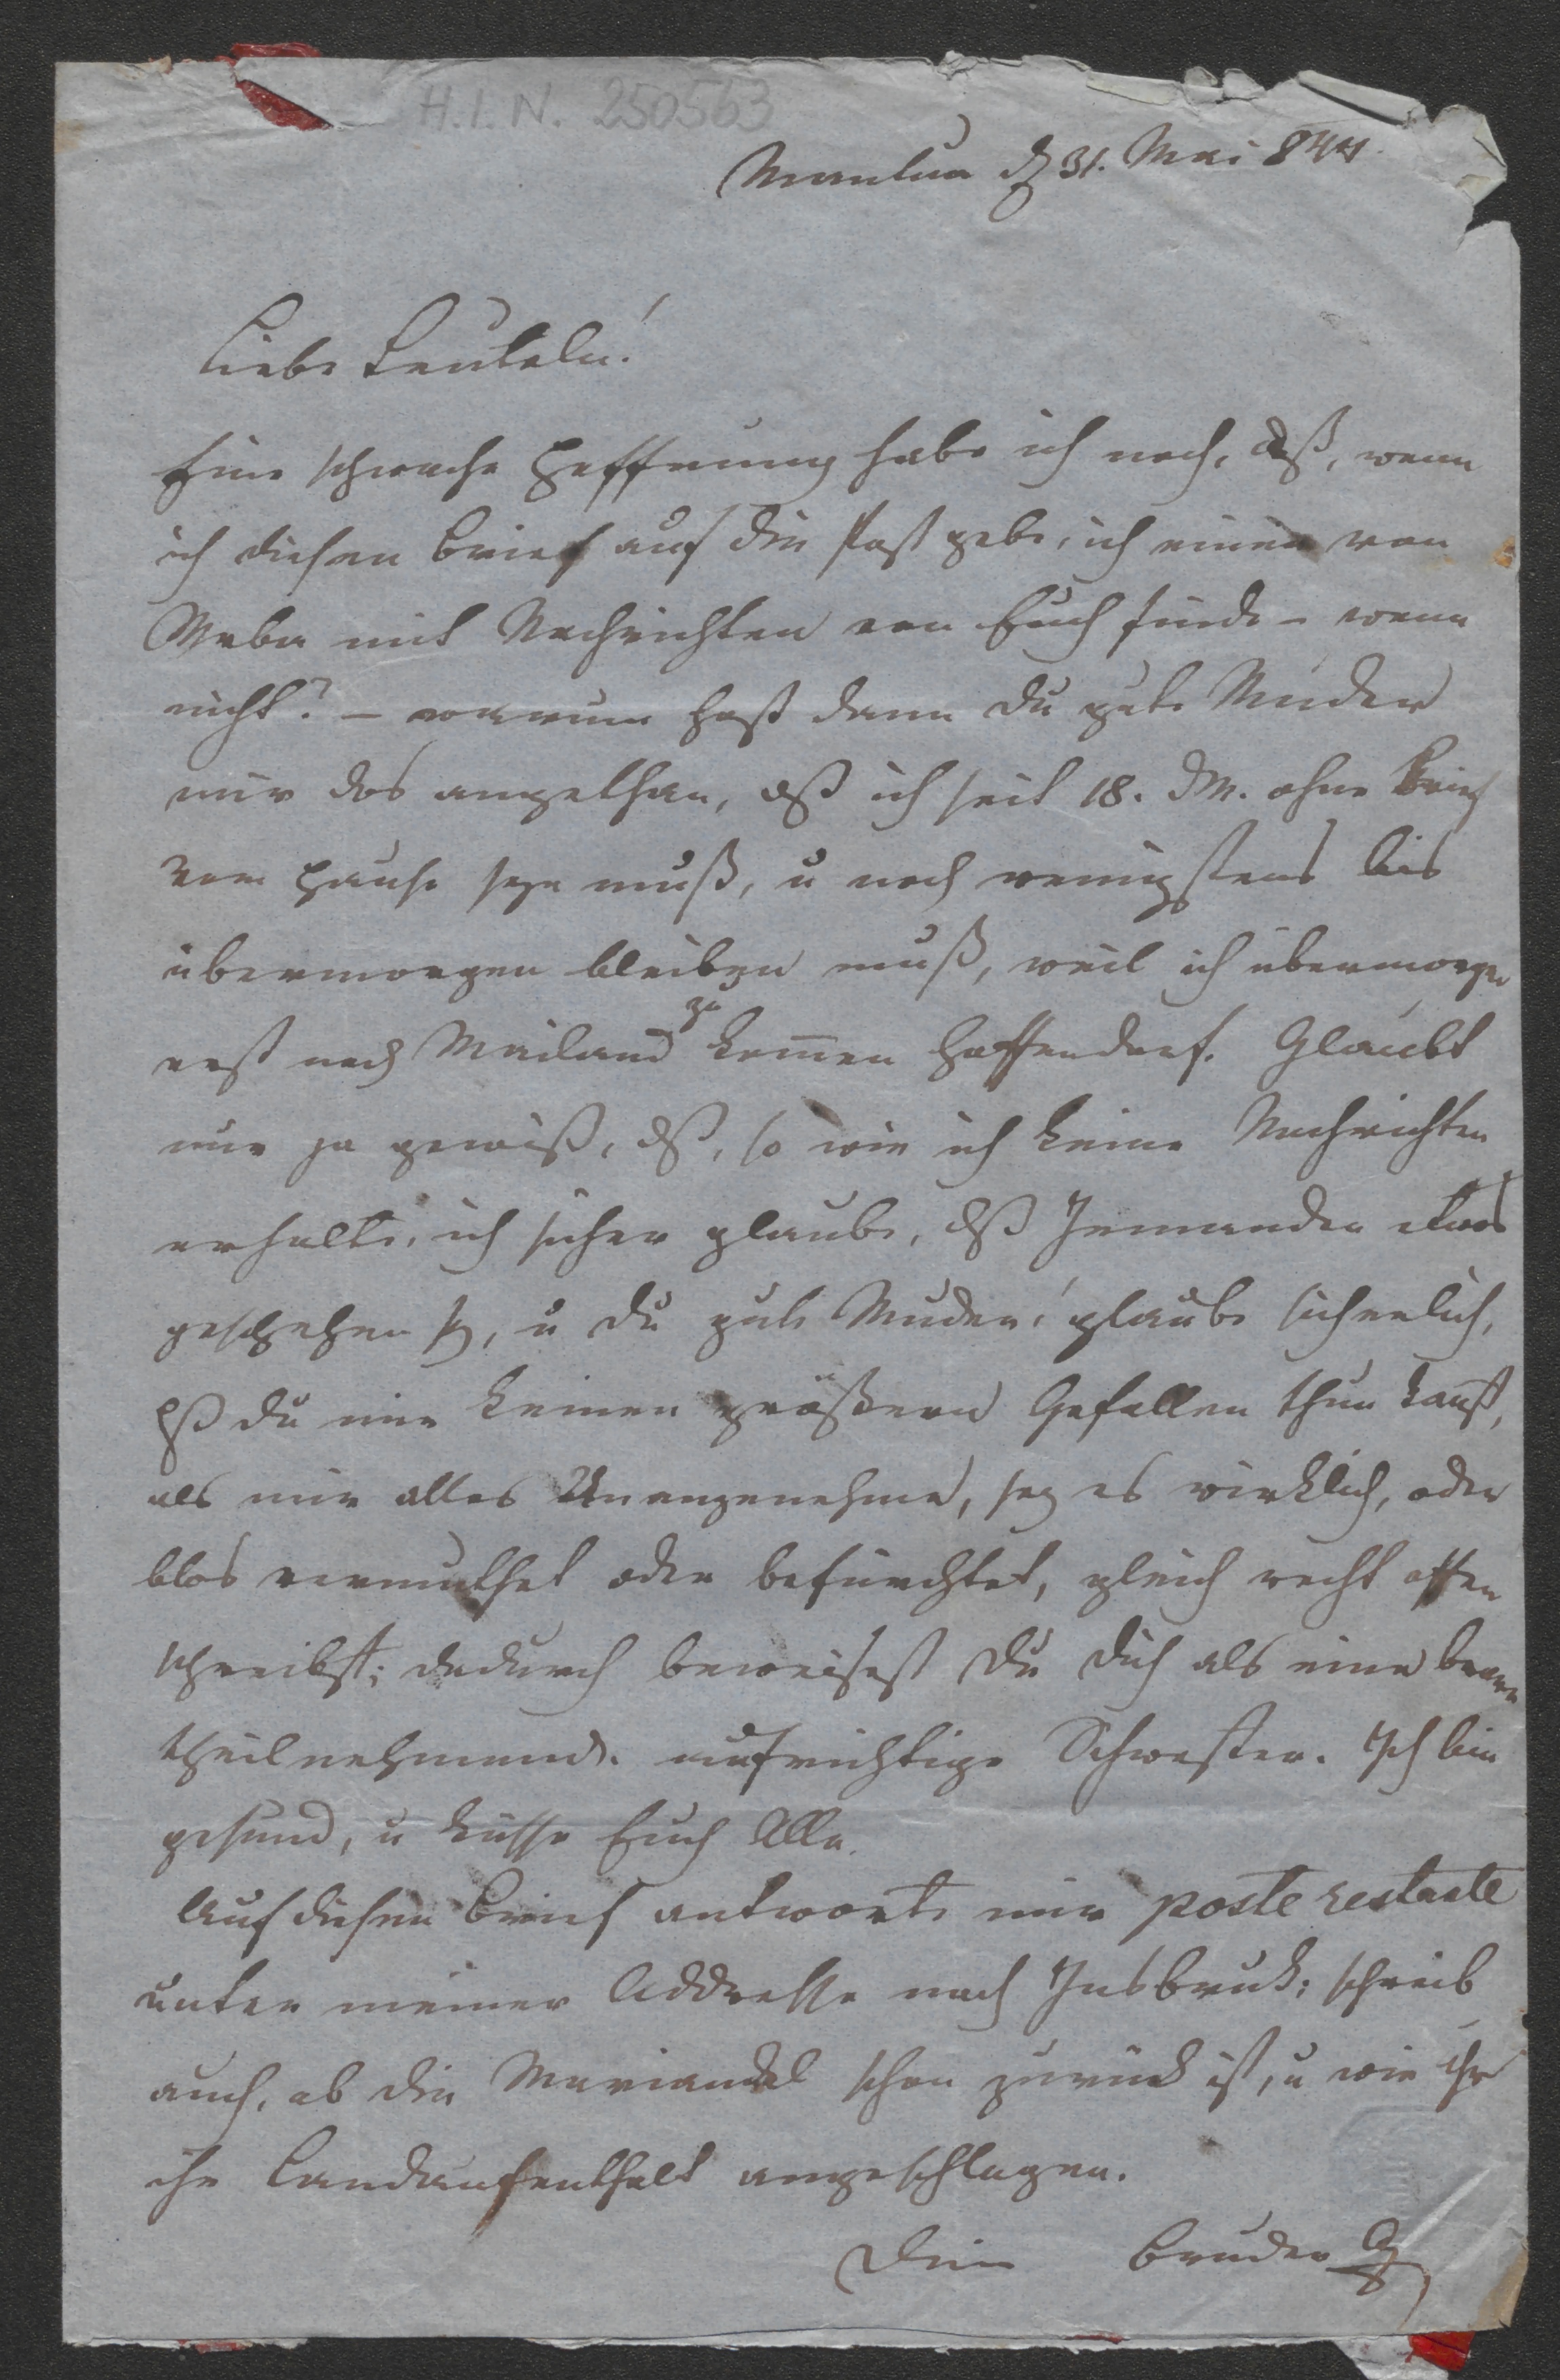 H.I.N. 250563
Mantua d 31. Mai 844
Liebe Leuteln!
Eine schwache Hoffnung habe ich noch, dß, wenn
ich diesen Brief auf die Post gebe, ich einen von
Weba mit Nachrichten von Euch finde – wenn
nicht? – warum hast denn du gute Muder
mir das angethan, dß ich seit 18. dM. ohne Brief
vom Hause seyn muß, u noch wenigstens bis
übermorgen bleiben muß, weil ich übermorgen
erst nach Mailand zu kommen hoffen darf. Glaubt
mir ja gewiß, dß, so wie ich keine Nachrichten
erhalte, ich sicher glaube, dß Jemanden etwas
geschehen sey, u du gute Muder! glaube sicherlich,
dß du mir keinen größern Gefallen thun kannst,
als mir alles Unangenehme, sey es wirklich, oder
blos vermuthet oder befürchtet, gleich recht offen
schreibst; dadurch beweisest du dich als eine brave
theilnehmende aufrichtige Schwester. Ich bin
gesund, u küsse Euch Alle.
Auf diesen Brief antworte mir poste restante
unter meiner Addresse nach Insbruk; schreib
auch, ob die Mariandel schon zurück ist, u wie ihr
ihr Landaufenthalt angeschlagen.
Dein Bruder